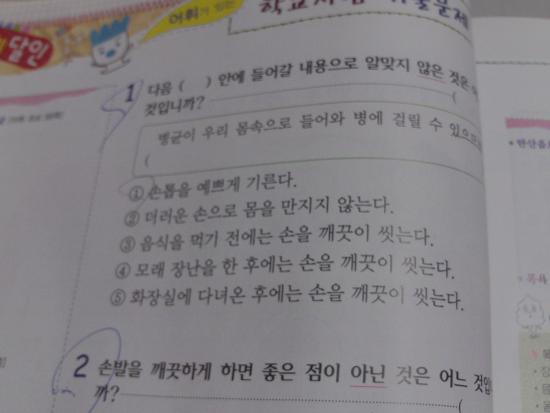 달인
어휘가 있는
1 다음 ( ) 안에 들어갈 내용으로 알맞지 않은 것은
것입니까? (
병균이 우리 몸속으로 들어와 병에 걸릴 수 있으므로
(
① 손톱을 예쁘게 기른다.
② 더러운 손으로 몸을 만지지 않는다.
③ 음식을 먹기 전에는 손을 깨끗이 씻는다.
④ 모래 장난을 한 후에는 손을 깨끗이 씻는다.
⑤ 화장실에 다녀온 후에는 손을 깨끗이 씻는다.
2 손발을 깨끗하게 하면 좋은 점이 아닌 것은 어느 것입
까? (